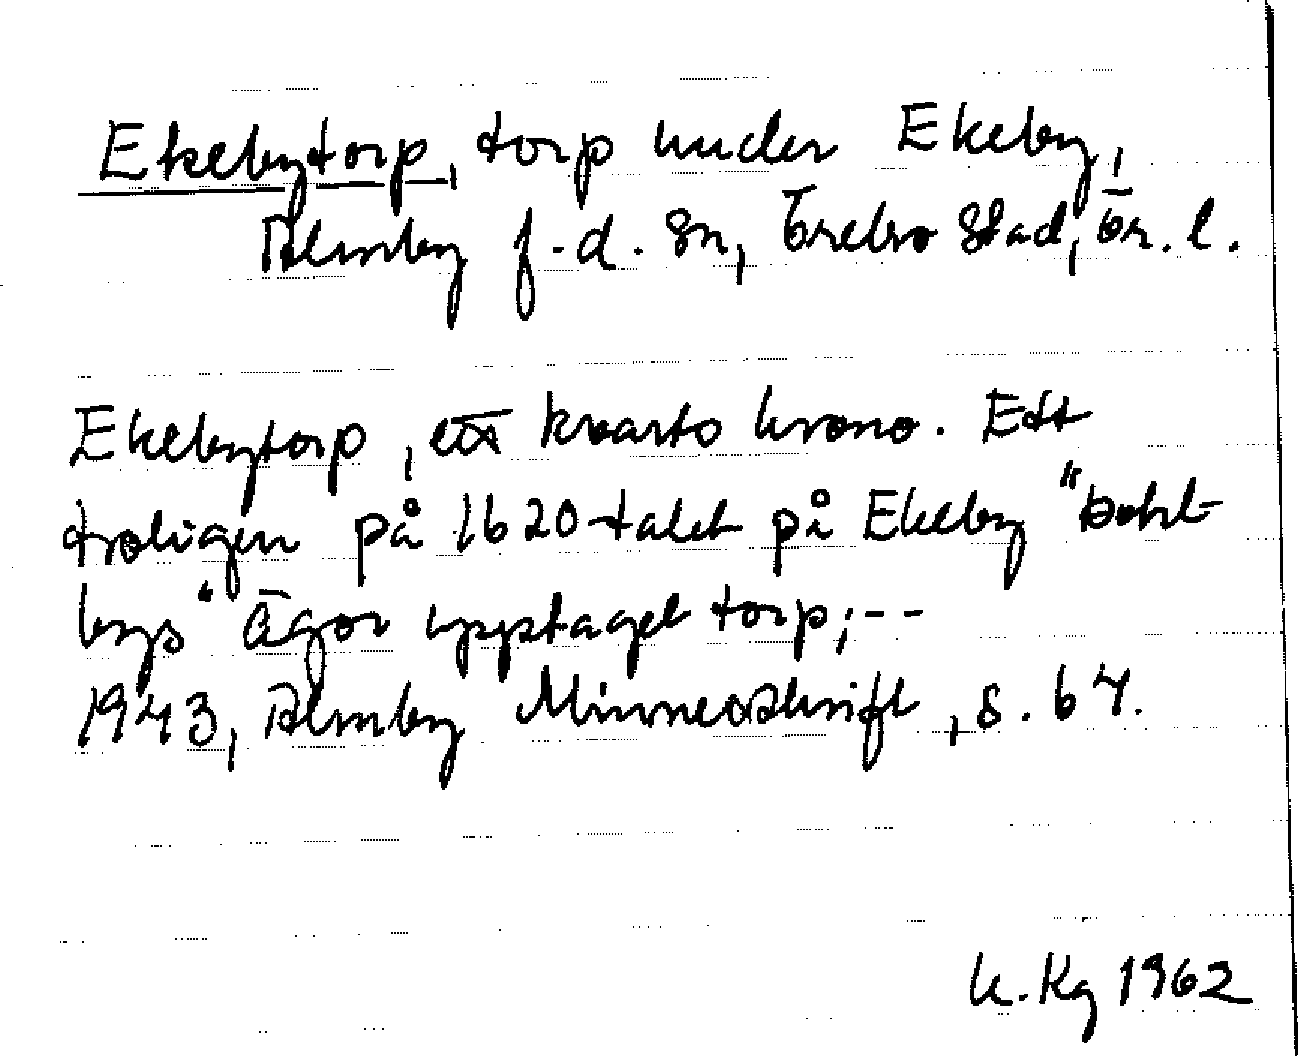 Ekebytorp, torp under Ekeby,
Almby f.d. sn, Örebro stad, Ör. l.
Ekebytorp, ett kvarts krono. Ett
troligen på 1620-talet på Ekeby
bys" ägor upptaget torp;--
1943, Almby Minnesskrift, s. 64.
K. Kg 1962